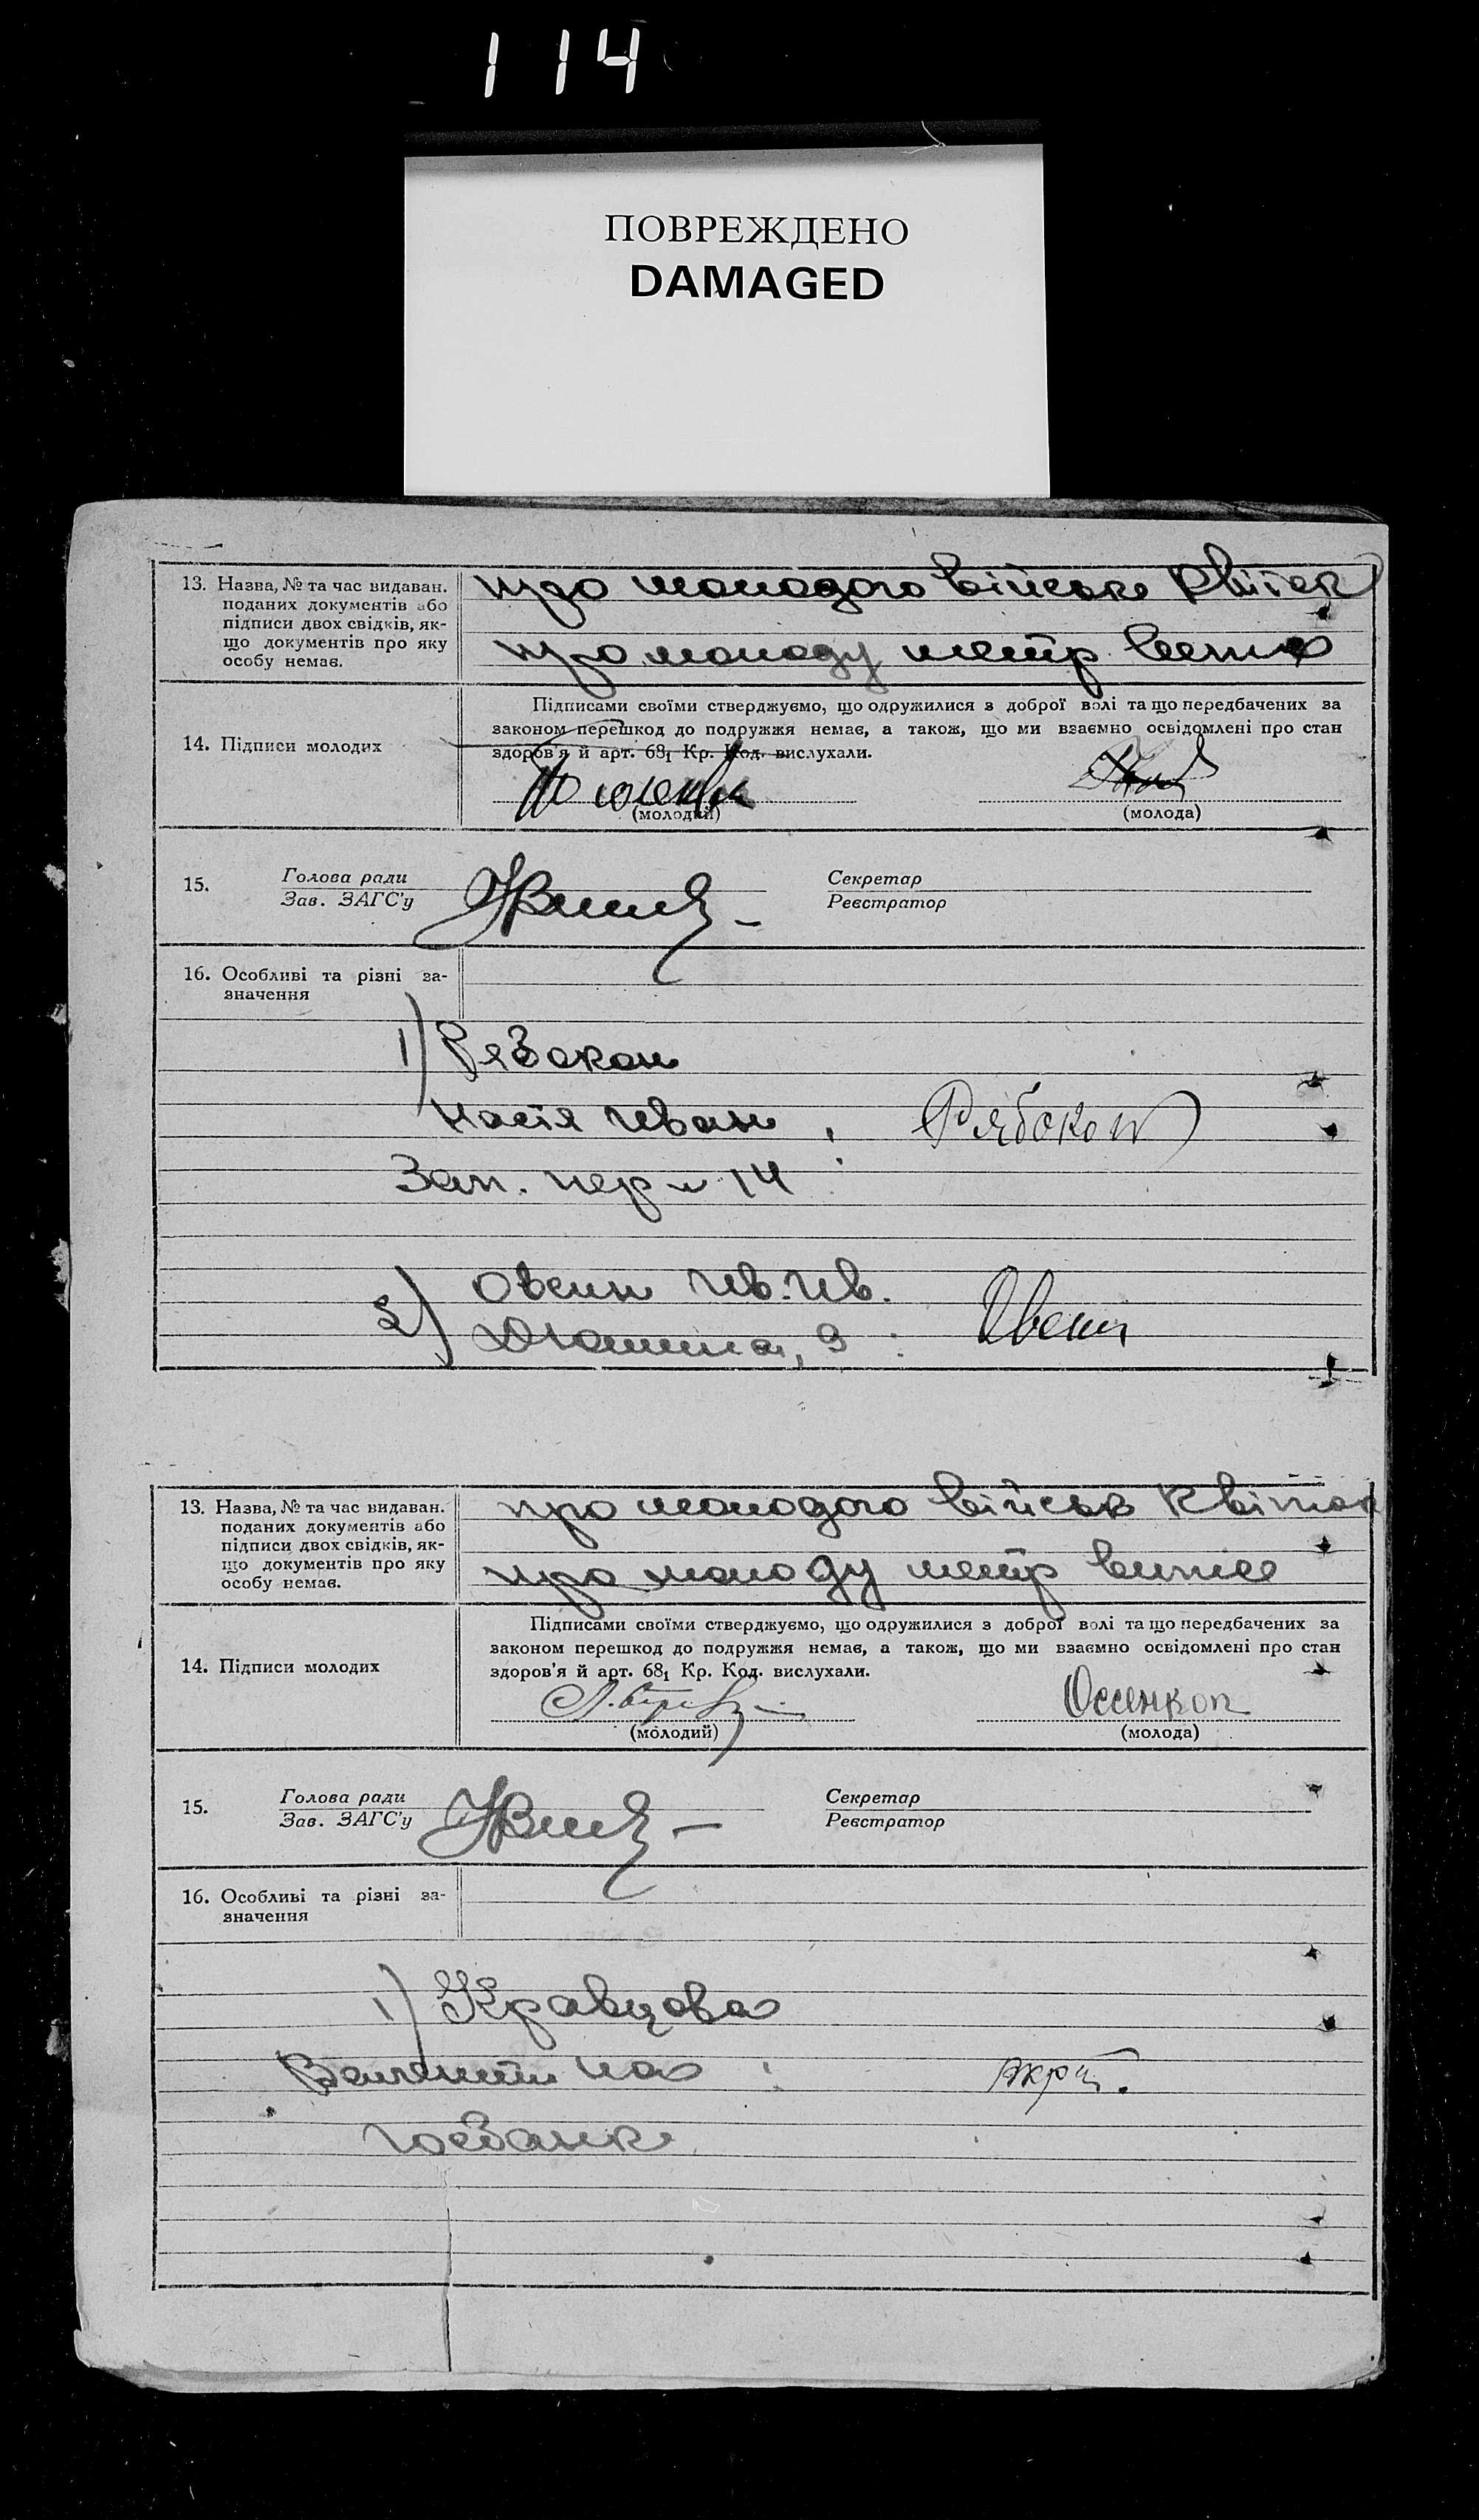 114
ПОВРЕЖДЕНО
DAMAGED
13. Назва, № та час видаван. поданих документів або підписи двох свідків, як-
що документів про яку
особу немає.
про молодого військ квиток
про молоду метр
14. Підписи молодих
Підписами своїми стверджуємо, що одружилися з доброї волі та що передбачених за
законом перешкод до подружжя немає, а також, що ми взаємно освідомлені про стан
здоров'я й арт. 68₁ Кр. Код. вислухали.
(молодий)
(молода)
15.
Голова ради
Зав. ЗАГС'у
Секретар
Реєстратор
16. Особливі та різні за-
значення
1) Рябокон
Иван Рябокон
Зап. пер 14
2) Ив. Ив.
9
13. Назва, № та час видаван.
поданих документів або
підписи двох свідків, як-
що документів про яку
особу немає.
про молодого військ квиток
про молоду метр
14. Підписи молодих
Підписами своїми стверджуємо, що одружилися з доброї волі та що передбачених за
законом перешкод до подружжя немає, а також, що ми взаємно освідомлені про стан
здоров'я й арт. 68₁ Кр. Код. вислухали.
(молодий)
(молода)
15.
Голова ради
Зав. ЗАГС'у
Секретар
Реєстратор
16. Особливі та різні за-
значення
1) Кравцова
Валентина
Госбанк